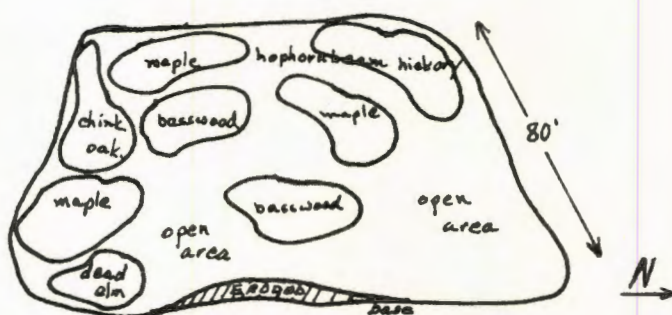 maple
hophornbeam
hickory
chink.
oak.
basswood
maple
80'
maple
basswood
open
area
open
area
dead
elm
ERODED
base
N